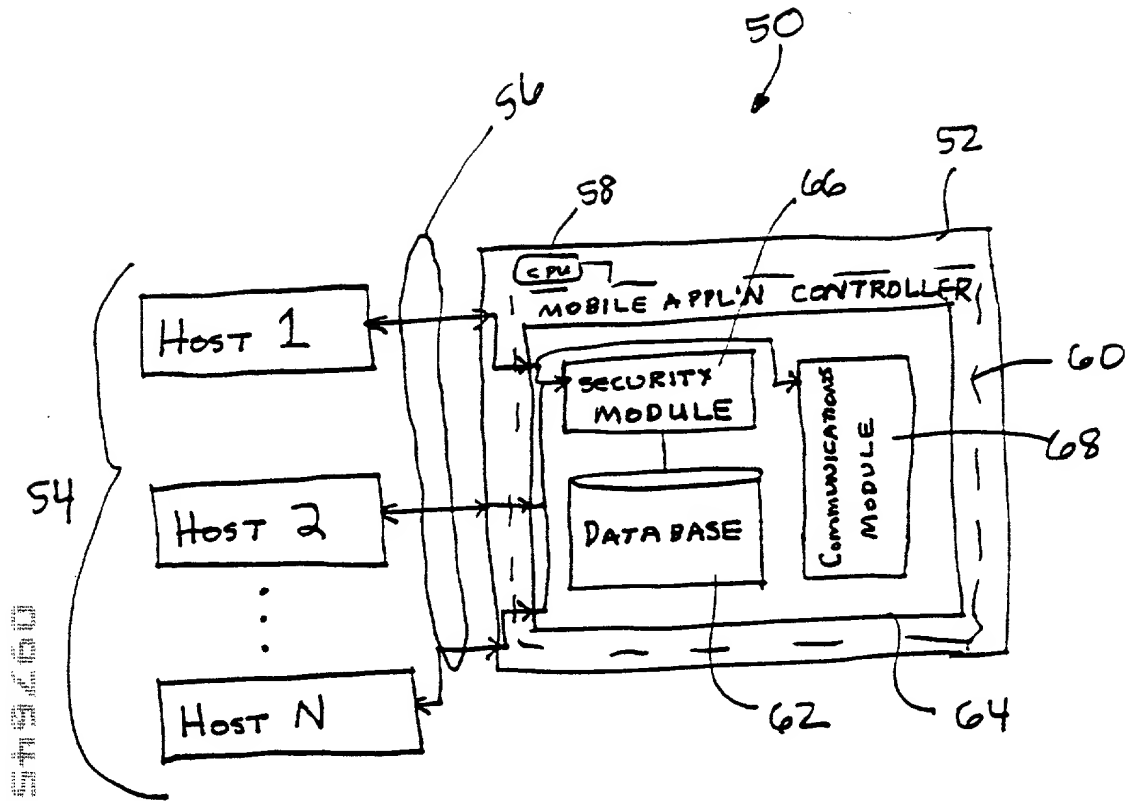 50
56
52
58
66
CPU
MOBILE APPL'N CONTROLLER
HOST 1
SECURITY
MODULE
60
COMMUNICATIONS
MODULE
68
54
HOST 2
DATABASE
HOST N
62
64